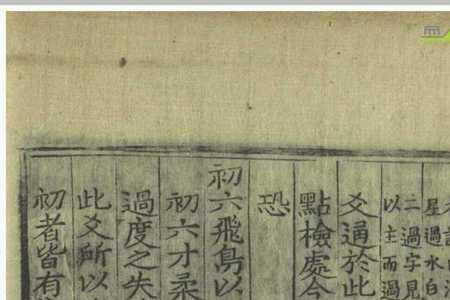 星過水白
二過字見
以主而過
爻過於此
點檢處令
恐
初六飛鳥以
初六才柔
過度之失
此爻所以
初者皆有